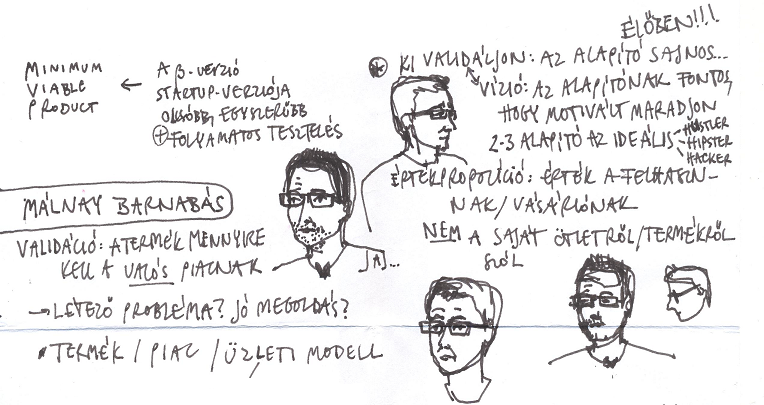 MINIMUM
VIABLE
PRODUCT
←
A β-VERZIÓ
STARTUP-VERZIÓJA
OLCSÓBB, EGYSZERŰBB
⊕ FOLYAMATOS TESZTELÉS
MÁLNAY BARNABÁS
VALIDÁCIÓ: A TERMÉK MENNYIRE
KELL A VALÓS PIACNAK
→ LÉTEZŐ PROBLÉMA? JÓ MEGOLDÁS?
• TERMÉK / PIAC / ÜZLETI MODELL
ÉLŐBEN!!!
KI VALIDÁLJON: AZ ALAPÍTÓ SAJNOS...
VÍZIÓ: AZ ALAPÍTÓNAK FONTOS,
HOGY MOTIVÁLT MARADJON
2-3 ALAPÍTÓ AZ IDEÁLIS
HUSTLER
HIPSTER
HACKER
ÉRTÉKPROPOZÍCIÓ: ÉRTÉK A FELHASZN-
NAK/VÁSÁRLÓNAK
NEM A SAJÁT ÖTLETRŐL/TERMÉKRŐL
SZÓL